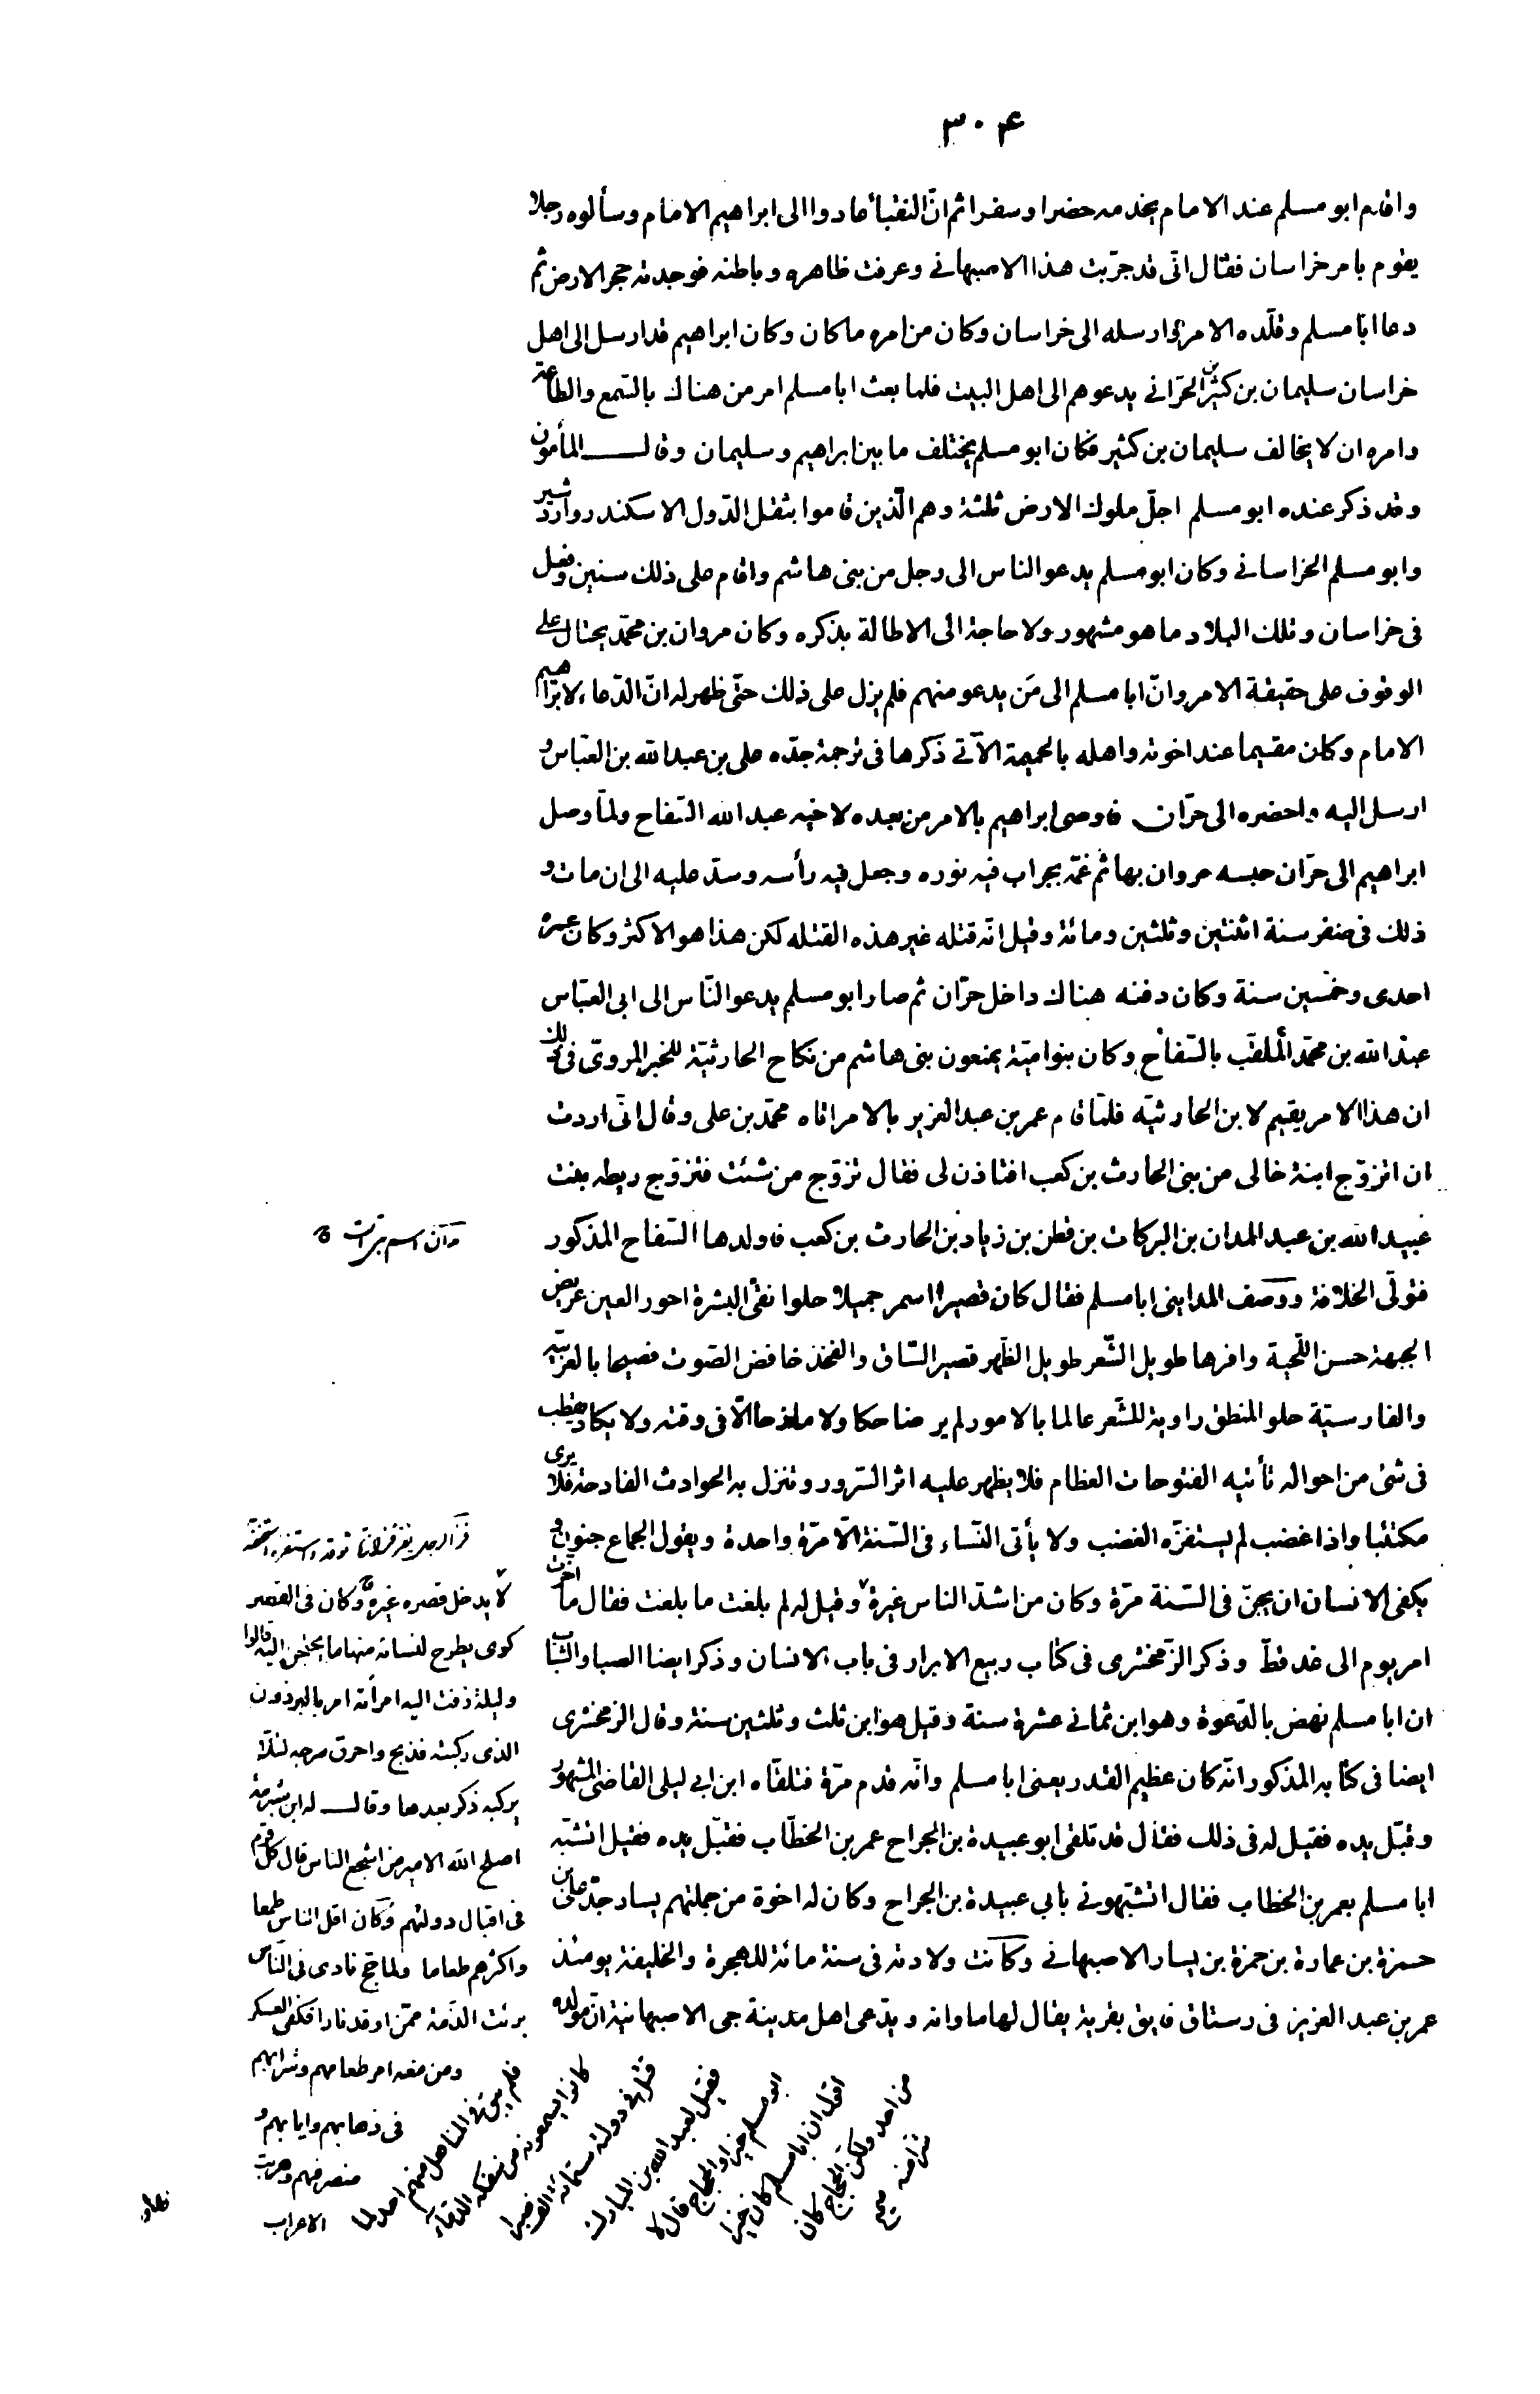 ٣٠٤
واقام ابو مسلم عند الامام يخدمه حضرا وسفرا ثم انّ النقبأ عادوا الى ابراهيم الامام وسألوه رجلا
يقوم بامر خراسان فقال انّى قد جرّبت هذا الاصبهانى وعرفت ظاهره وباطنه فوجدته حجر الارض ثم
دعا ابا مسلم وقلّده الامر وارسله الى خراسان وكان من امره ما كان وكان ابراهيم قد ارسل الى اهل
خراسان سليمان بن كثير الحرّانى يدعوهم الى اهل البيت فلما بعث ابا مسلم امر من هناك بالسّمع والطاعة
وامره ان لا يخالف سليمان بن كثير فكان ابو مسلم يختلف ما بين ابراهيم وسليمان وقال المأمون
وقد ذكر عنده ابو مسلم اجلّ ملوك الارض ثلثة وهم الّذين قاموا بثقل الدّول الاسكندر واردشير
وابو مسلم الخراسانى وكان ابو مسلم يدعو الناس الى رجل من بنى هاشم واقام على ذلك سنين وفعل
فى خراسان وتلك البلاد ما هو مشهور ولا حاجة الى الاطالة بذكره وكان مروان بن محمّد يحتال على
الوقوف على حقيقة الامر وانّ ابا مسلم الى مَن يدعو منهم فلم يزل على ذلك حتّى ظهر له انّ الدّعاء لابراهيم
الامام وكان مقيما عند اخوته واهله بالحميمة الآتى ذكرها فى ترجمة جدّه على بن عبد الله بن العبّاس و
ارسل اليه واحضره الى حرّان فاوصى ابراهيم بالامر من بعده لاخيه عبد الله السّفاح ولمّا وصل
ابراهيم الى حرّان حبسه مروان بها ثم غمّه بجراب فيه نوره وجعل فيه رأسه وسدّ عليه الى ان مات و
ذلك فى صفر سنة اثنتين وثلثين ومائة وقيل انّه قتله غير هذه القتله لكن هذا هو الاكثر وكان عمره
احدى وخمسين سنة وكان دفنه هناك داخل حرّان ثم صار ابو مسلم يدعو النّاس الى ابى العبّاس
عبد الله بن محمّد الملقّب بالسّفاح وكان بنو اميّة يمنعون بنى هاشم من نكاح الحارثيّة للخبر المروىّ فى ذلك
ان هذا الامر يقيم لابن الحارثيّه فلمّا قام عمر بن عبد العزيز بالامر اتاه محمّد بن على وقال انّى اردت
ان اتزوّج ابنة خالى من بنى الحارث بن كعب افتاذن لى فقال تزوّج من شئت فتزوّج ريطه بنت
عبيد الله بن عبد المدان بن البركات بن قطن بن زياد بن الحارث بن كعب فاولدها السّفاح المذكور
فتولّى الخلافة ووصف المداينى ابا مسلم فقال كان قصيرا اسمر جميلا حلوا نقى البشرة احور العين عريض
الجبهة حسن اللّحية وافرها طويل الشّعر طويل الظّهر قصير السّاق والفخذ خافض الصّوت فصيحا بالعربيّه
والفارسيّة حلو المنطق راوية للشّعر عالما بالامور لم ير ضاحكا ولا مازحا الّا فى وقته ولا يكاد يقطب
فى شئ من احواله تأتيه الفتوحات العظام فلا يظهر عليه اثر السّرور وتنزل به الحوادث الفادحة فلا يرى
مكتئبا واذا غضب لم يستفزّه الغضب ولا يأتى النّساء فى السّنة الّا مرّة واحدة ويقول الجماع جنون و
يكفى الانسان ان يجنّ فى السّنة مرّة وكان من اشدّ الناس غيرة وقيل له لم بلغت ما بلغت فقال ما اخّرت
امر يوم الى غد قطّ وذكر الزّمخشرى فى كتاب ربيع الابرار فى باب الانسان وذكر ايضا الصبا والشباب
ان ابا مسلم نهض بالدّعوة وهو ابن ثمانى عشرة سنة وقيل هو ابن ثلث وثلثين سنة وقال الزمخشرى
ايضا فى كتابه المذكور انّه كان عظيم القدر يعنى ابا مسلم وانّه قدم مرّة فتلقّاه ابن ابى ليلى القاضى المشهور
وقبّل يده فقيل له فى ذلك فقال قد تلقى ابو عبيدة بن الجراح عمر بن الخطّاب فقبّل يده فقيل اتشبّه
ابا مسلم بعمر بن الخطاب فقال اتشبّهونى بابى عبيدة بن الجراح وكان له اخوة من جملتهم يسار جدّ على بن
حمزة بن عمارة بن حمزة بن يسار الاصبهانى وكانت ولادته فى سنة مائة للهجرة والخليفة يومئذ
عمر بن عبد العزيز فى رستاق فايق بقرية يقال لها ماوانه ويدّعى اهل مدينة جى الاصبهانية انّ مولده
لا يدخل قصره غيره وكان فى القصر
كوى يطرح لنسائه منها ما يحتجن اليه قالوا
وليلة زفت اليه امرأته امر بالبرذون
الذى ركبته فذبح واحرق سرجه لئلا
يركبه ذكر بعدها وقال له ابن شبرمه
اصلح الله الامير من اشجع الناس قال كل قوم
فى اقبال دولتهم وكان اقل الناس طمعا
واكثرهم طعاما ولما حج نادى فى النّاس
برئت الذّمة ممّن اوقد نارا فكفى العسكر
ومن معه امر طعامهم وشرابهم
فى ذهابهم وايابهم و
منصرفهم وهربت
الاعراب
فلم يبق فى المناهل منهم احد لما
كانوا يسمعونه من سفكه الدماء
قتل فى دولته ستمائة الف صبرا
فقيل لعبد الله بن المبارك
ابو مسلم خير او الحجاج قال لا
اقول ان ابا مسلم كان خيرا
من احد ولكن الحجاج كان
شرا منه